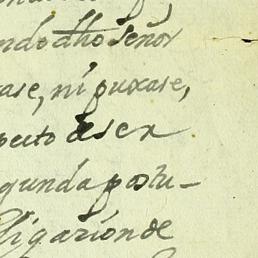 ndo dho señor
ase, ni puxase,
pecto de ser
gunda postu-
ligazion de